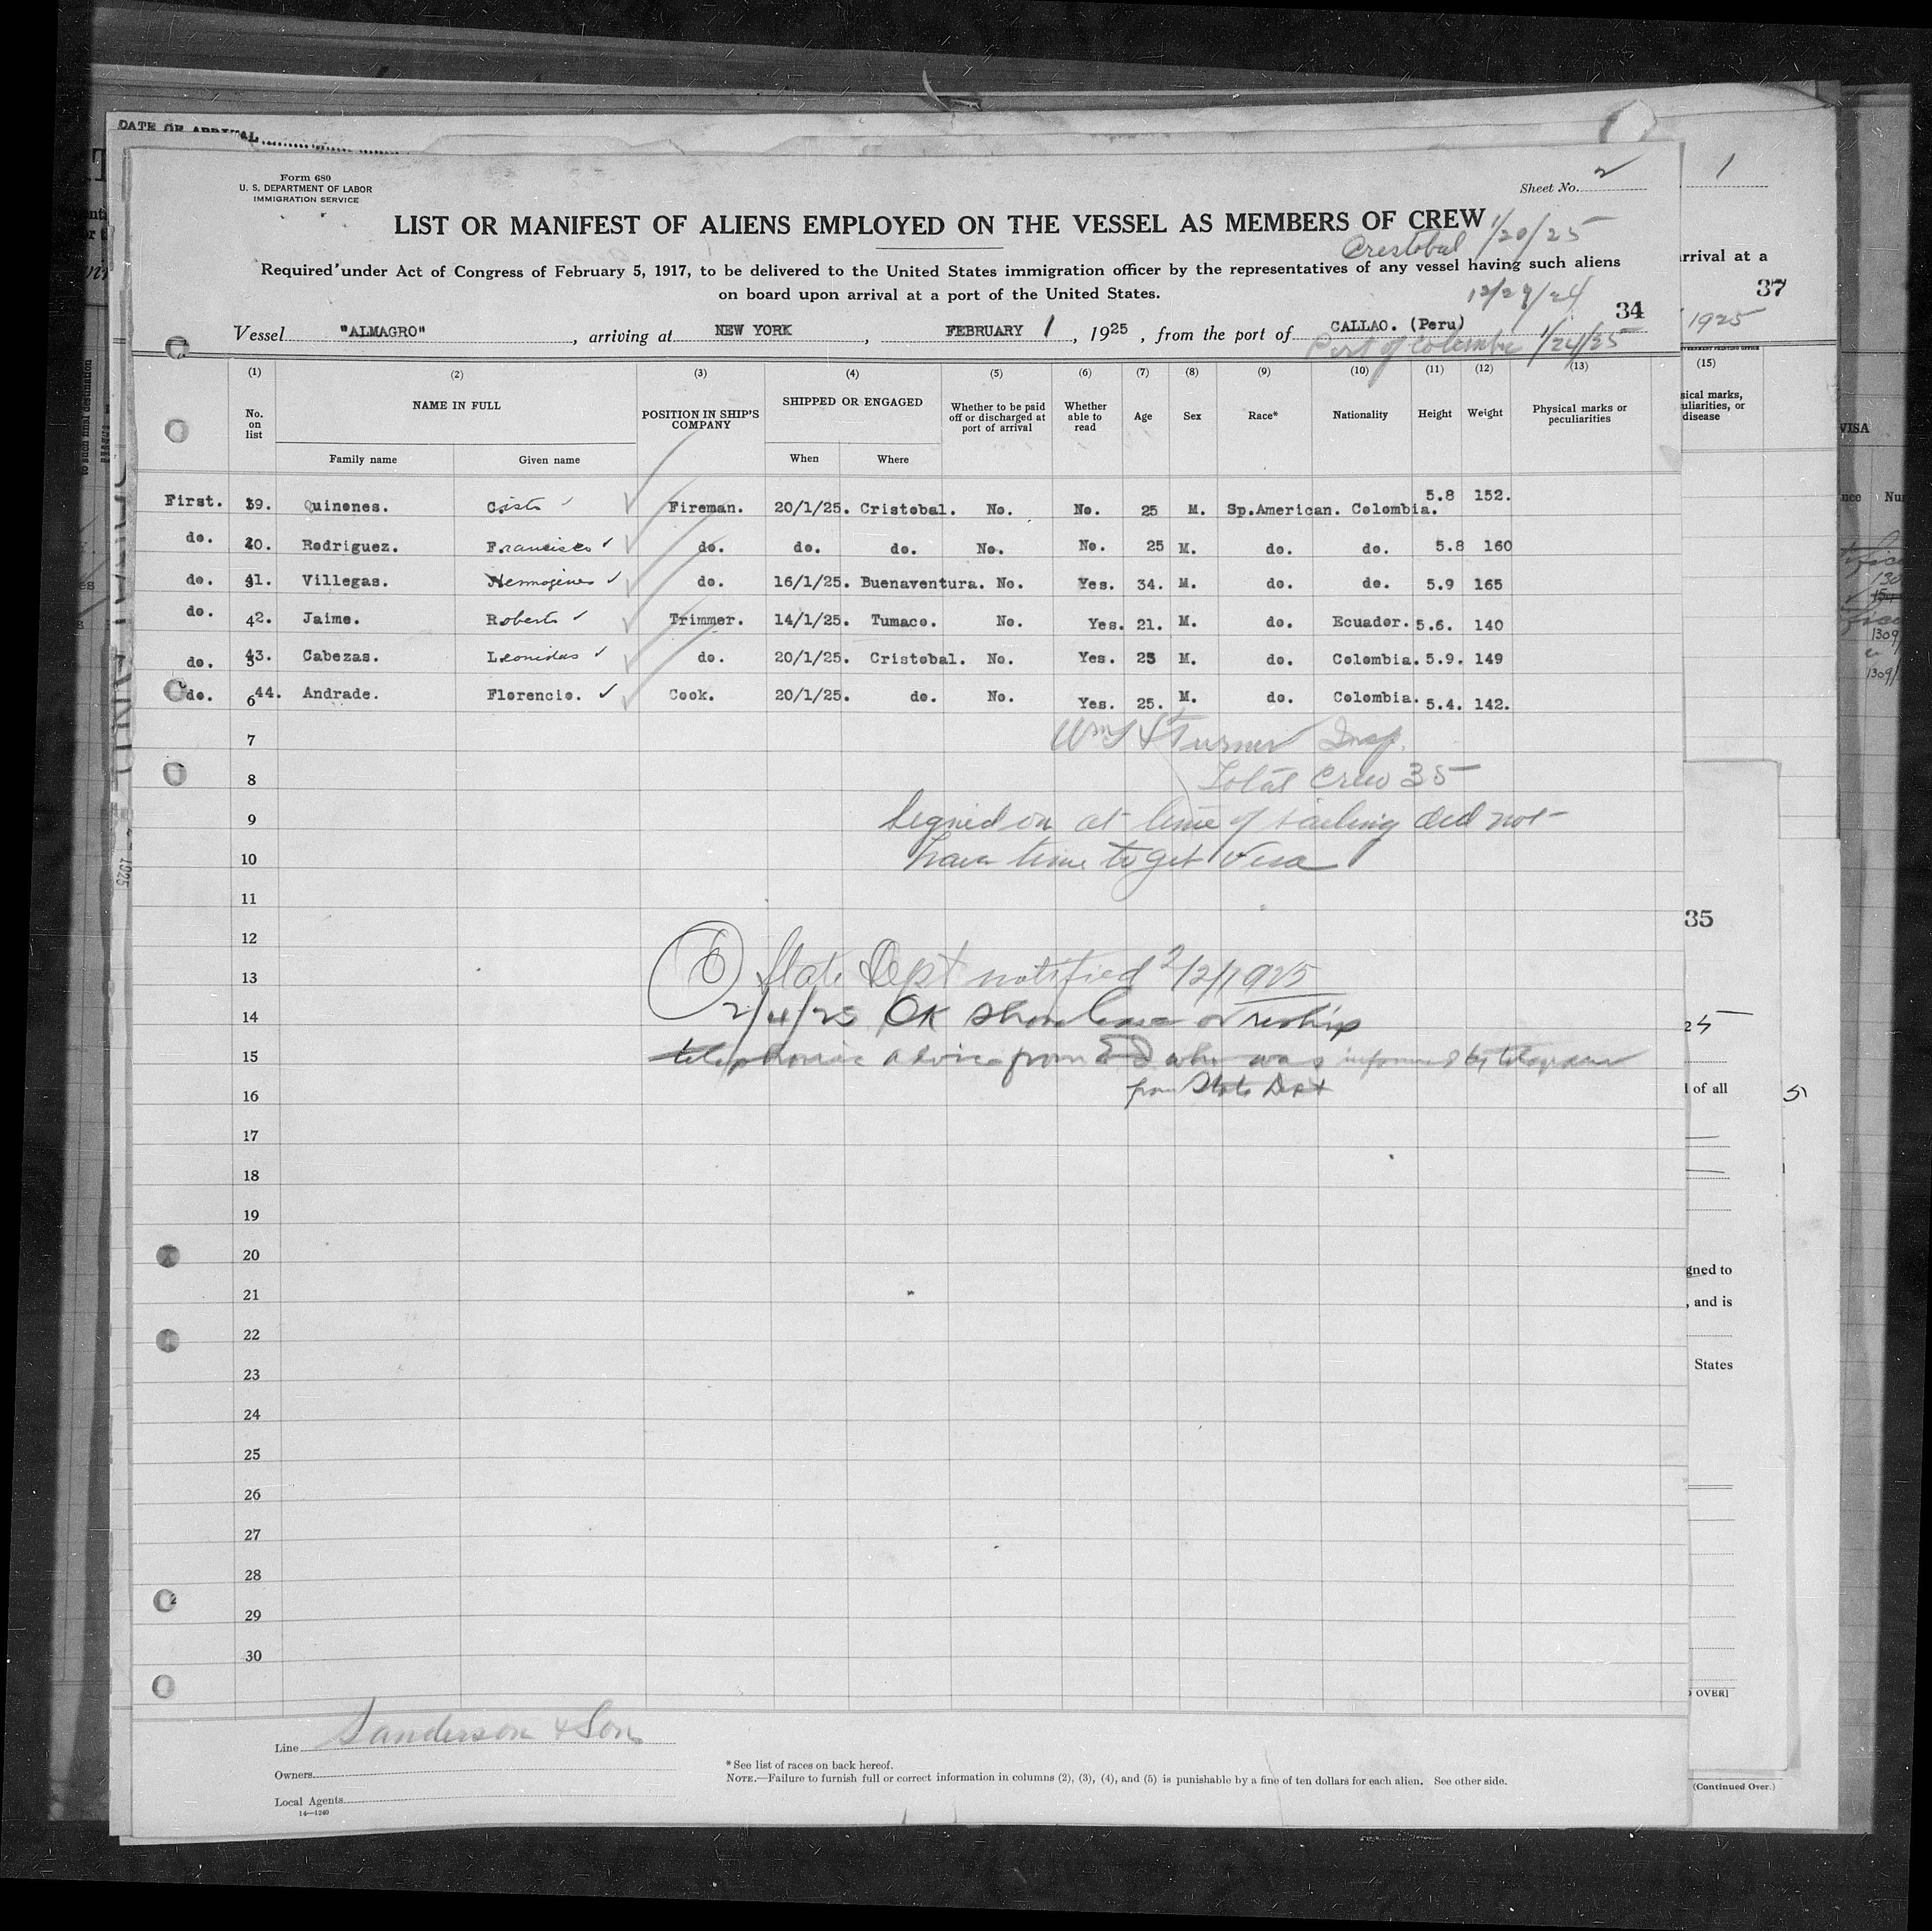 DATE OF ARRIVAL
Form 680
U. S. DEPARTMENT OF LABOR
IMMIGRATION SERVICE
Sheet No. 2
1
LIST OR MANIFEST OF ALIENS EMPLOYED ON THE VESSEL AS MEMBERS OF CREW
Crestobal 1/20/25
Required under Act of Congress of February 5, 1917, to be delivered to the United States immigration officer by the representatives of any vessel having such aliens
on board upon arrival at a port of the United States.
12/29/24
34
Vessel "ALMAGRO", arriving at NEW YORK, FEBRUARY 1, 1925, from the port of CALLAO. (Peru)
Port of Colombia 1/24/25
arrival at a
37
1925
(1) (2) (3) (4) (5) (6) (7) (8) (9) (10) (11) (12) (13) (15)
No. on list
NAME IN FULL
Family name
Given name
POSITION IN SHIP'S COMPANY
SHIPPED OR ENGAGED
When
Where
Whether to be paid off or discharged at port of arrival
Whether able to read
Age
Sex
Race*
Nationality
Height
Weight
Physical marks or peculiarities
VISA
First. 39. Quinones. Cisto Fireman. 20/1/25. Cristobal. No. No. 25 M. Sp.American. Colombia. 5.8 152.
do. 40. Rodriguez. Francisco do. do. do. No. No. 25 M. do. do. 5.8 160
do. 41. Villegas. Hermogines do. 16/1/25. Buenaventura. No. Yes. 34. M. do. do. 5.9 165
do. 42. Jaime. Roberto Trimmer. 14/1/25. Tumaco. No. Yes. 21. M. do. Ecuador. 5.6. 140
do. 43. Cabezas. Leonidas do. 20/1/25. Cristobal. No. Yes. 25 M. do. Colombia. 5.9. 149
do. 6 44. Andrade. Florencio. Cook. 20/1/25. do. No. Yes. 25. M. do. Colombia. 5.4. 142.
7 Turner Insp.
8 Total Crew 35
9 Signed on at time of sailing did not
10 have time to get Visa
11
35
12
13 6 State Dept notified 2/2/1925
14 2/4/25 OK Shore leave or reship
15 telephonic advice from E D who was informed by telegram
16 from State Dept
17
18
19
20
21
22
23
24
25
26
27
28
29
30
l of all
5
gned to
, and is
States
OVER]
Line Sanderson & Son
Owners
Local Agents
14—1240
* See list of races on back hereof.
NOTE.—Failure to furnish full or correct information in columns (2), (3), (4), and (5) is punishable by a fine of ten dollars for each alien. See other side.
(Continued Over.)